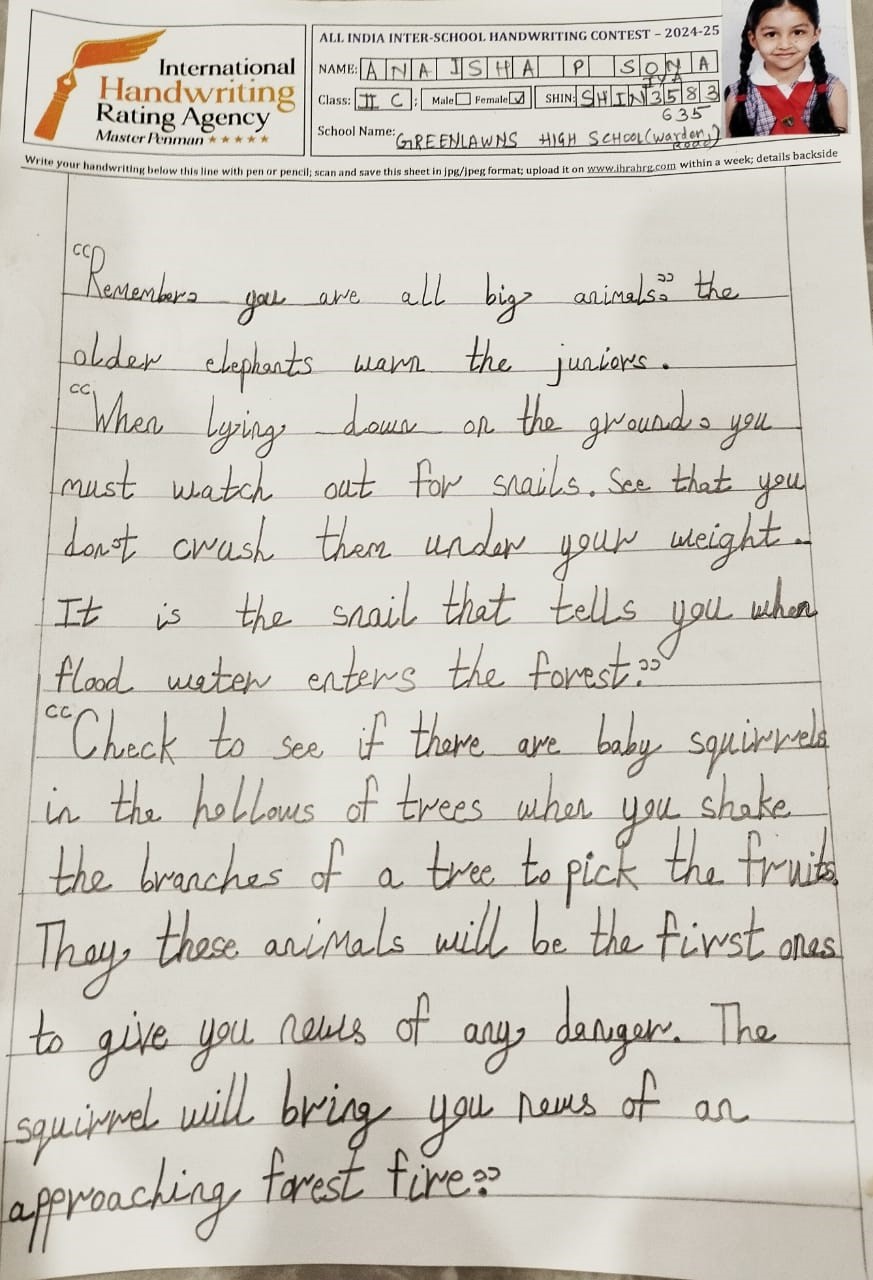 International
Handwriting
Rating Agency
Master Penman ★★★★★
ALL INDIA INTER-SCHOOL HANDWRITING CONTEST – 2024-25
NAME: ANAISHA P SONA
IYA
Class: II C ; Male Female ✓ SHIN: SHIN3583
635
School Name: GREENLAWNS HIGH SCHOOL (Warden
Road)
Write your handwriting below this line with pen or pencil; scan and save this sheet in jpg/jpeg format; upload it on www.ihrahrg.com within a week; details backside
“Remember, you are all big animals.” the
older elephants warn the juniors.
“When lying down on the ground, you
must watch out for snails. See that you
don't crush them under your weight.
It is the snail that tells you when
flood water enters the forest.”
“Check to see if there are baby squirrels
in the hollows of trees when you shake
the branches of a tree to pick the fruits.
They, these animals will be the first ones
to give you news of any danger. The
squirrel will bring you news of an
approaching forest fire.”